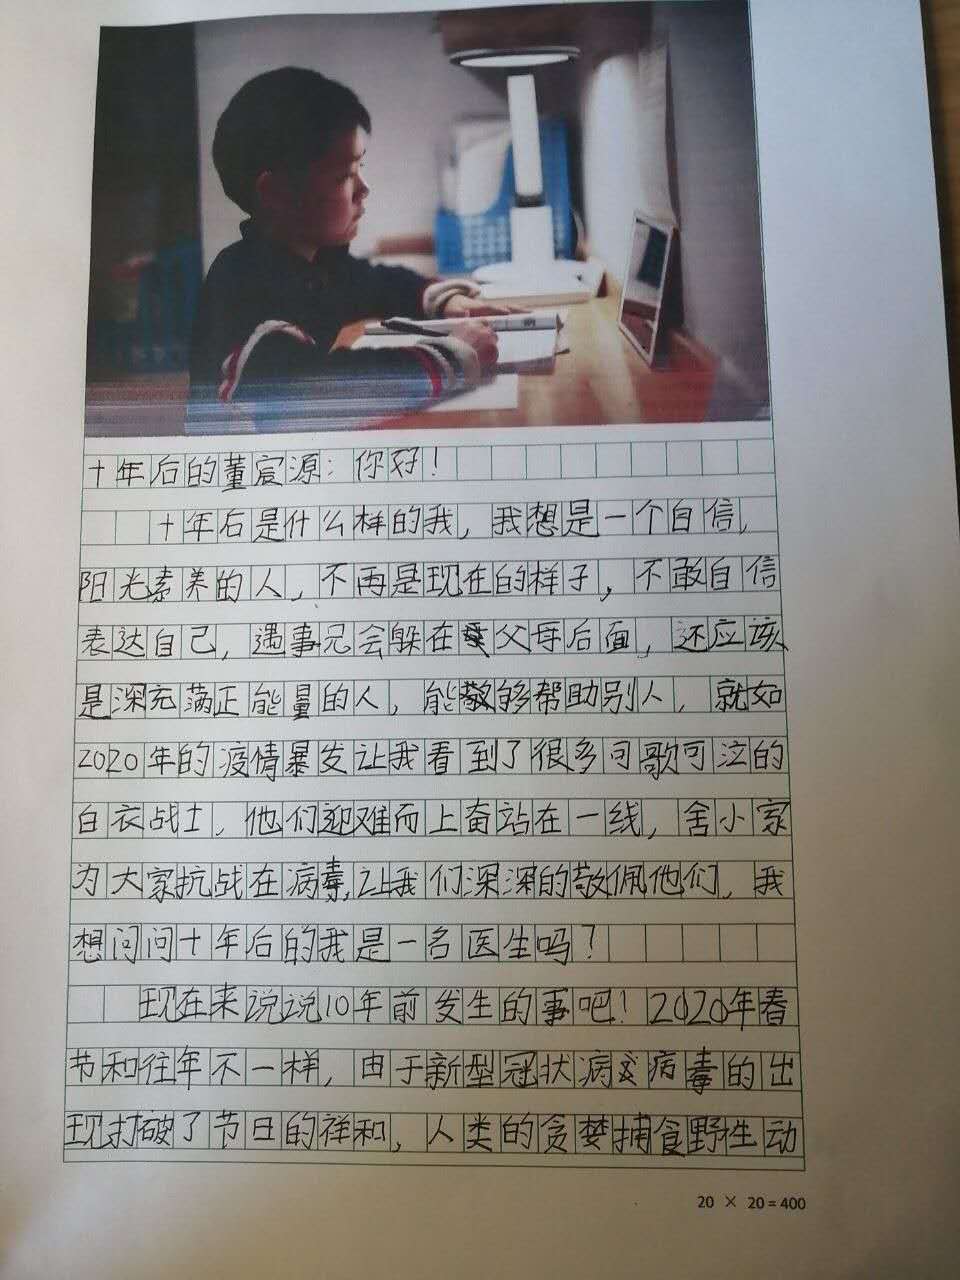 十年后的董宸源：你好！
十年后是什么样的我，我想是一个自信，
阳光素养的人，不再是现在的样子，不敢自信
表达自己，遇事只会躲在父母后面，还应该
是深充满正能量的人，能够帮助别人，就如
2020年的疫情暴发让我看到了很多可歌可泣的
白衣战士，他们迎难而上奋站在一线，舍小家
为大家抗战在病毒，让我们深深的敬佩他们，我
想问问十年后的我是一名医生吗？
现在来说说10年前发生的事吧！2020年春
节和往年不一样，由于新型冠状病毒的出
现打破了节日的祥和，人类的贪婪捕食野生动
20 × 20 = 400